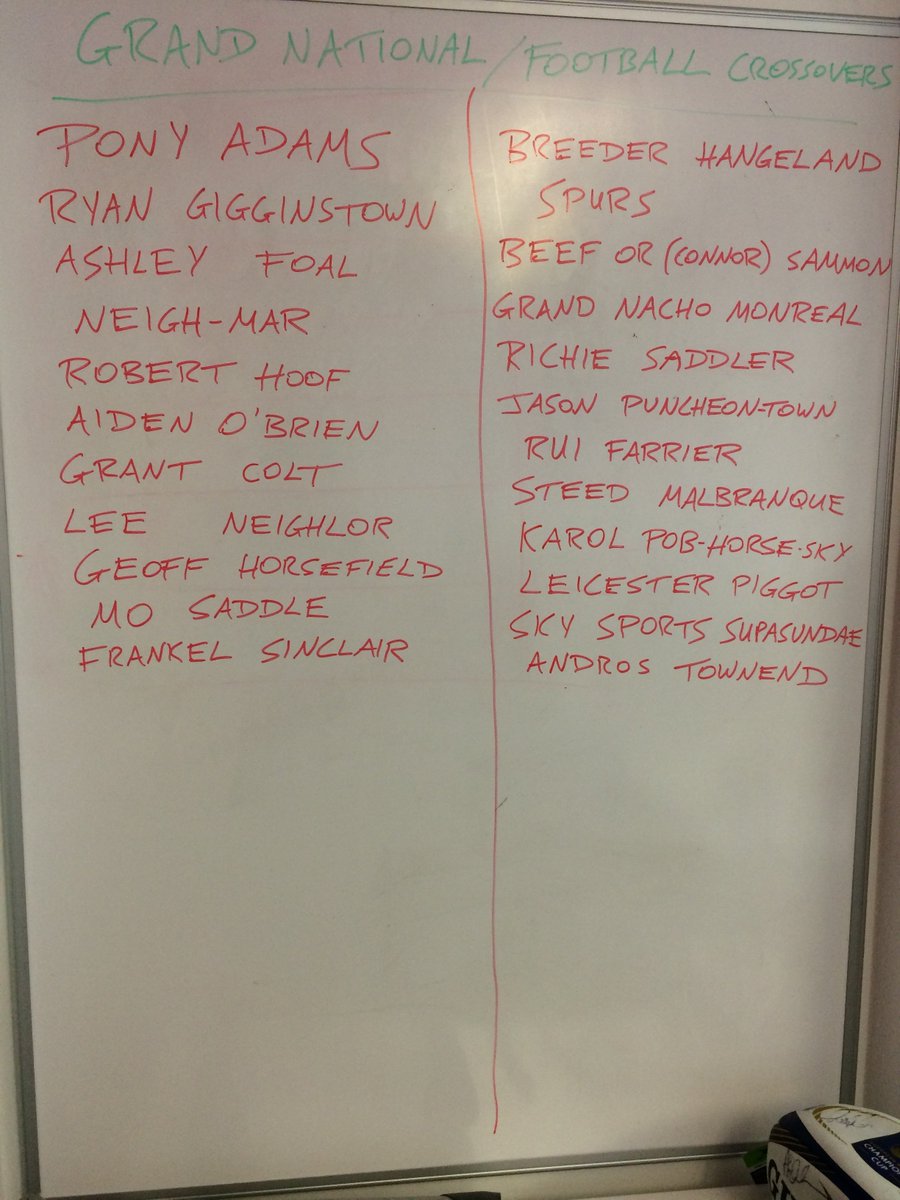 GRAND NATIONAL / FOOTBALL CROSSOVERS
PONY ADAMS
RYAN GIGGINSTOWN
ASHLEY FOAL
NEIGH-MAR
ROBERT HOOF
AIDEN O'BRIEN
GRANT COLT
LEE NEIGHLOR
GEOFF HORSEFIELD
MO SADDLE
FRANKEL SINCLAIR
BREEDER HANGELAND
SPURS
BEEF OR (CONNOR) SAMMON
GRAND NACHO MONREAL
RICHIE SADDLER
JASON PUNCHEON-TOWN
RUI FARRIER
STEED MALBRANQUE
KAROL POB-HORSE-SKY
LEICESTER PIGGOT
SKY SPORTS SUPASUNDAE
ANDROS TOWNEND
CHAMPIONS
CUP